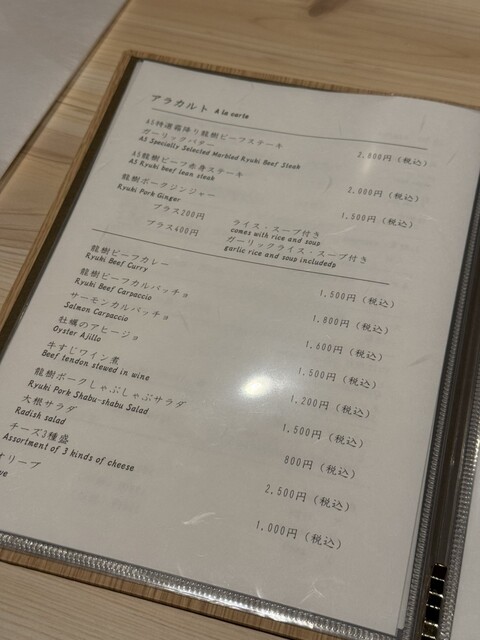 アラカルト A la carte
A5特選霜降り龍樹ビーフステーキ
ガーリックバター 2,800円(税込)
A5 Specially Selected Marbled Ryuki Beef Steak
A5龍樹ビーフ赤身ステーキ 2,000円(税込)
A5 Ryuki beef lean steak
龍樹ポークジンジャー 1,500円(税込)
Ryuki Pork Ginger
プラス200円 ライス・スープ付き
comes with rice and soup
プラス400円 ガーリックライス・スープ付き
garlic rice and soup includedp
龍樹ビーフカレー 1,500円(税込)
Ryuki Beef Curry
龍樹ビーフカルパッチョ 1,800円(税込)
Ryuki Beef Carpaccio
サーモンカルパッチョ 1,600円(税込)
Salmon Carpaccio
牡蠣のアヒージョ 1,500円(税込)
Oyster Ajillo
牛すじワイン煮 1,200円(税込)
Beef tendon stewed in wine
龍樹ポークしゃぶしゃぶサラダ 1,500円(税込)
Ryuki Pork Shabu-shabu Salad
大根サラダ 800円(税込)
Radish salad
チーズ3種盛 2,500円(税込)
Assortment of 3 kinds of cheese
オリーブ 1,000円(税込)
ve